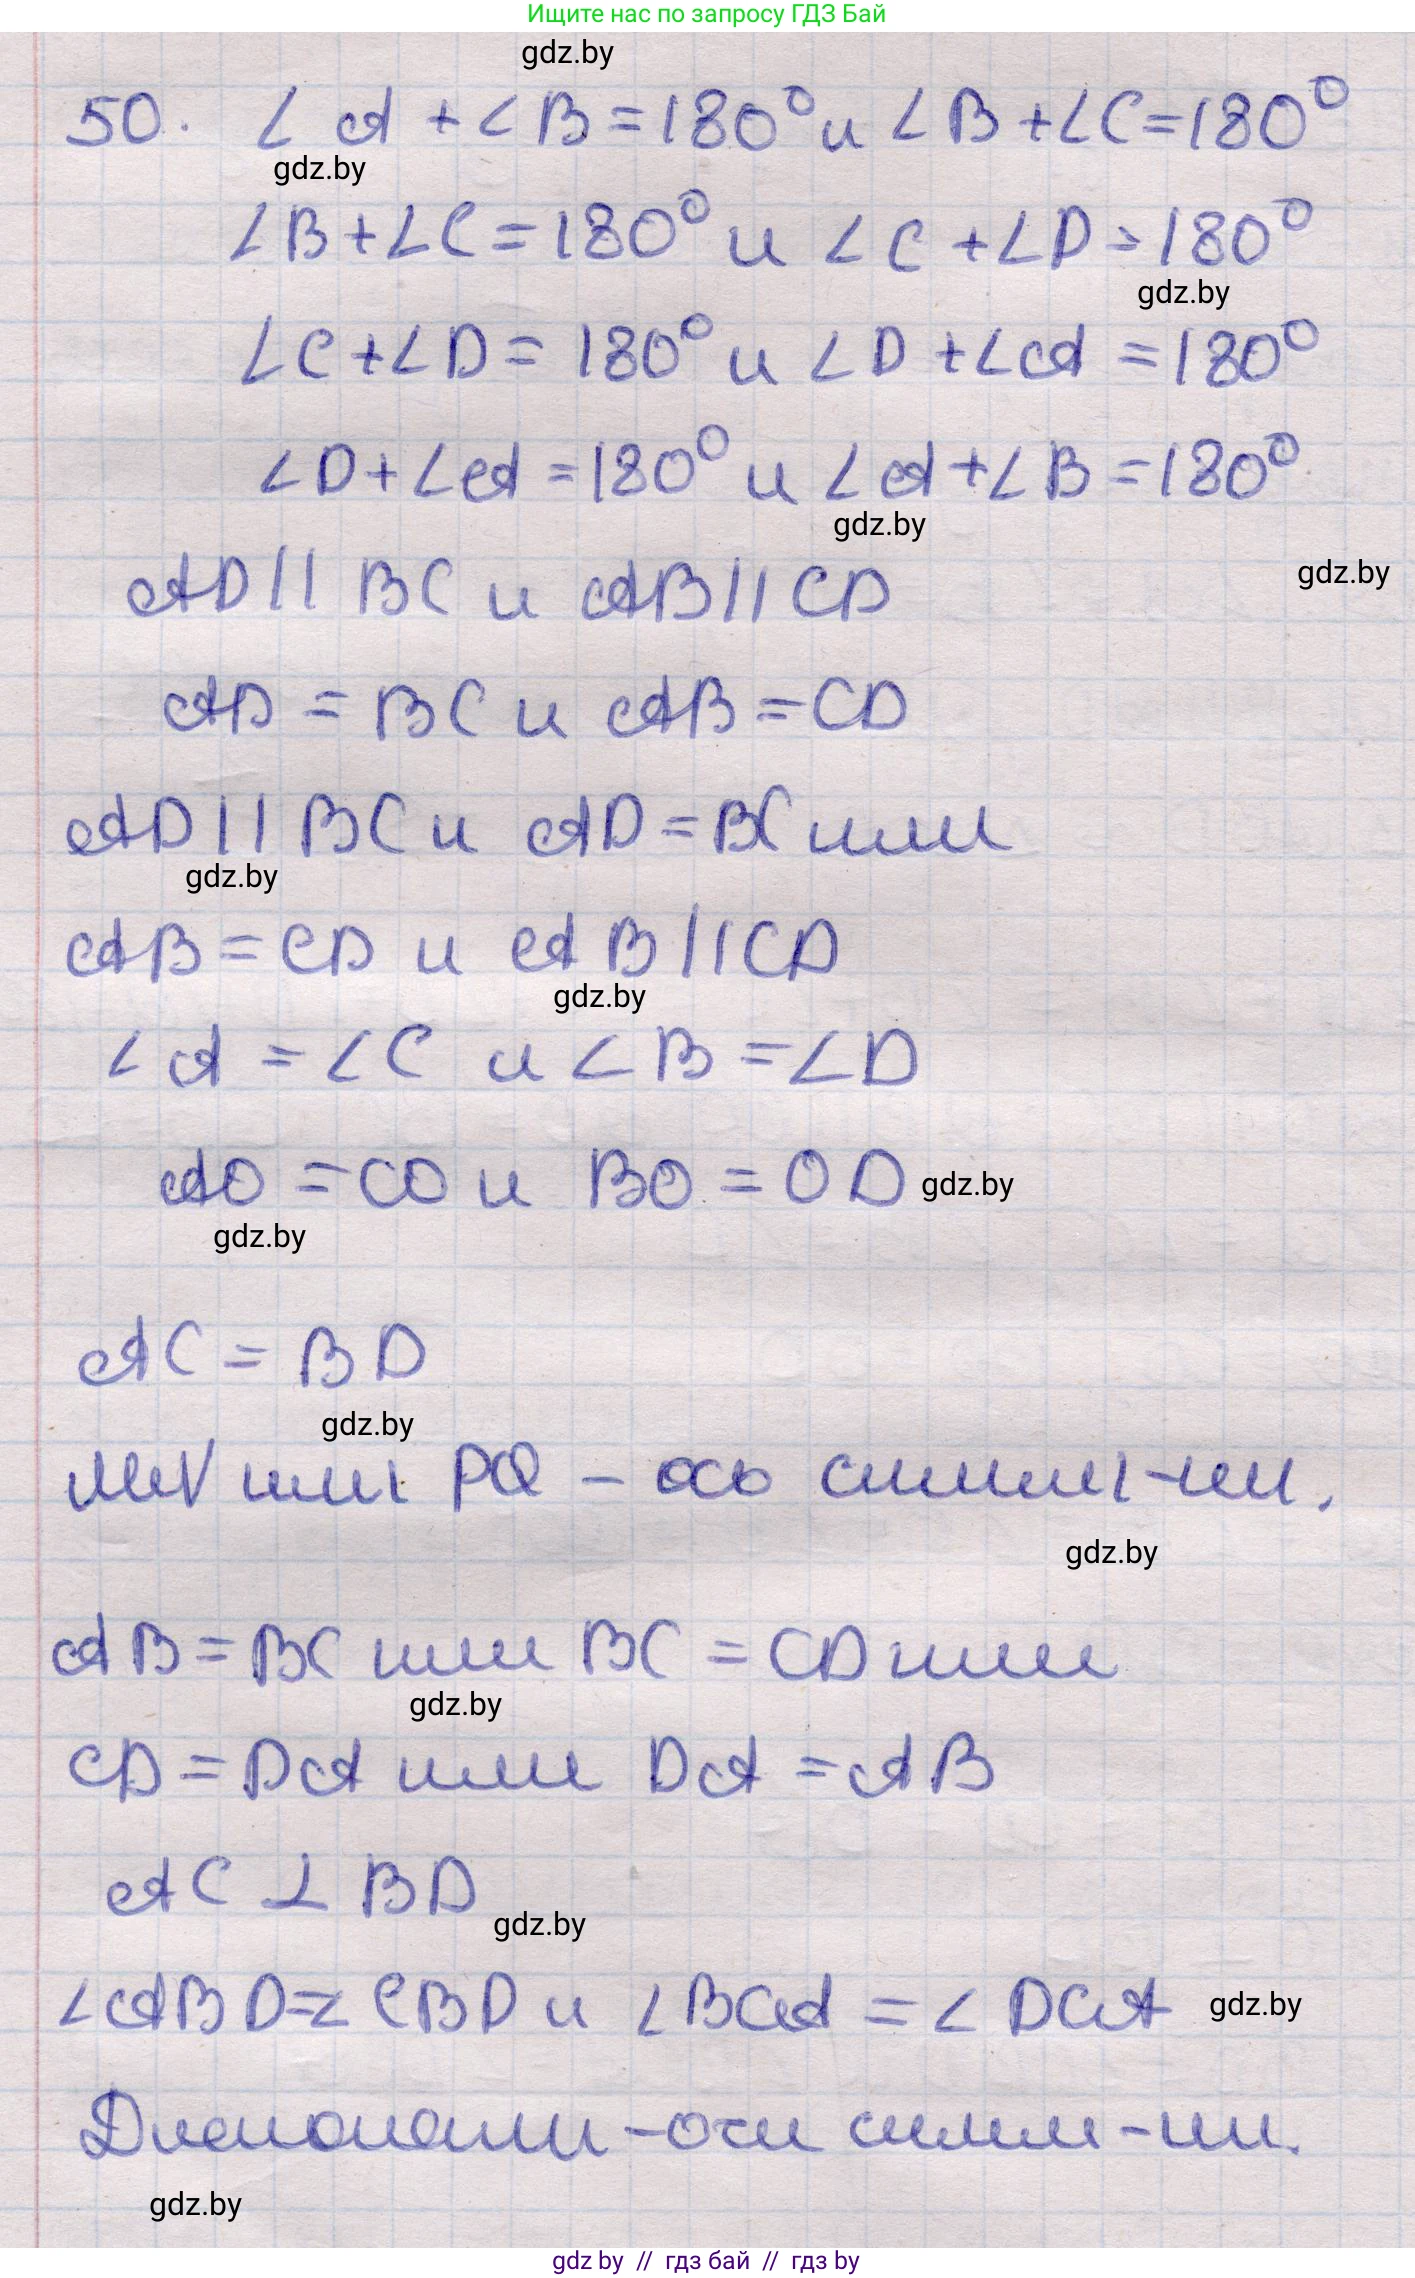 Ищите нас по запросу ГДЗ Бай
gdz.by
50. ∠A + ∠B = 180° и ∠B + ∠C = 180°
gdz.by
∠B + ∠C = 180° и ∠C + ∠D = 180°
gdz.by
∠C + ∠D = 180° и ∠D + ∠A = 180°
∠D + ∠A = 180° и ∠A + ∠B = 180°
gdz.by
gdz.by
AD || BC и AB || CD
AD = BC и AB = CD
AD || BC и AD = BC или
gdz.by
AB = CD и AB || CD
gdz.by
∠A = ∠C и ∠B = ∠D
AO = CO и BO = OD gdz.by
gdz.by
AC = BD
gdz.by
MN или PQ – ось симм-ии.
gdz.by
AB = BC или BC = CD или
gdz.by
CD = DA или DA = AB
AC ⊥ BD
gdz.by
∠ABD = ∠CBD и ∠BCA = ∠DCA gdz.by
Диагонали – оси симм-ии.
gdz.by
gdz by // гдз бай // гдз by